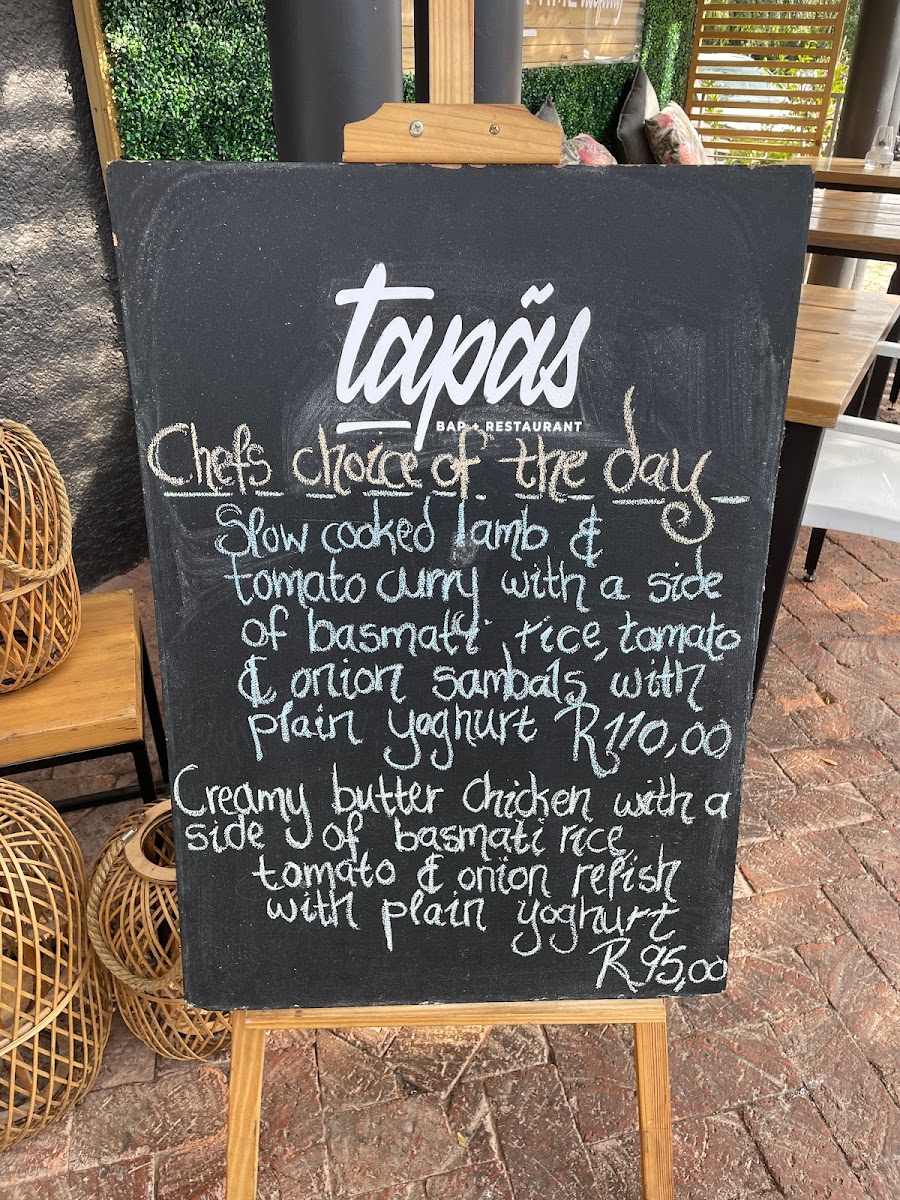 tapãs
BAR + RESTAURANT
Chefs choice of the day
Slow cooked lamb &
tomato curry with a side
of basmati rice, tomato
& onion sambals with
plain yoghurt R110,00
Creamy butter chicken with a
side of basmati rice,
tomato & onion relish
with plain yoghurt
R95,00